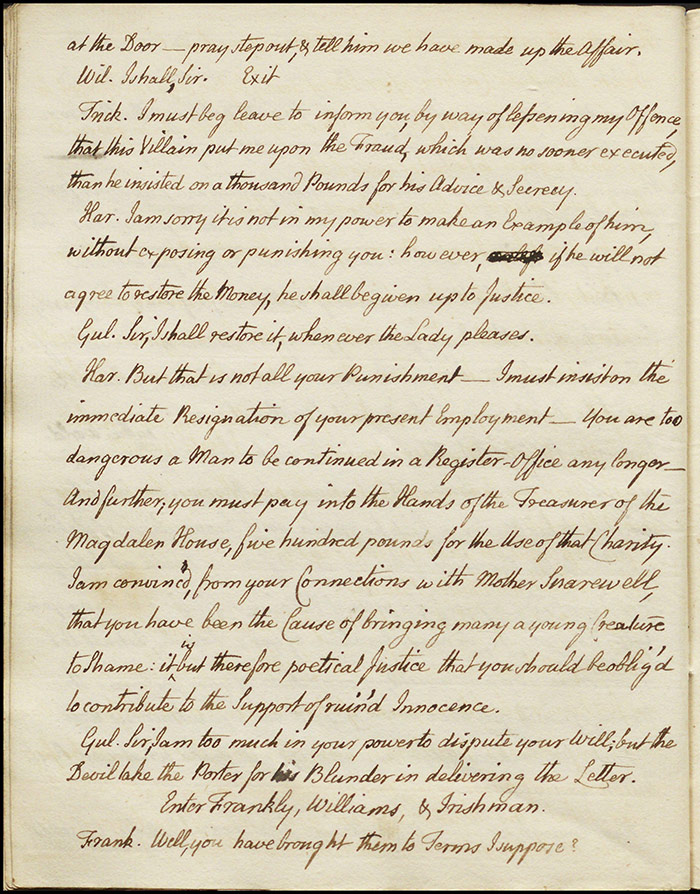 at the Door — pray step out, & tell him we have made up the Affair.
Wil. I shall, Sir. Exit
Trick. I must beg leave to inform you, by way of lessening my Offence,
that this Villain put me upon the Fraud, which was no sooner executed,
than he insisted on a thousand Pounds for his Advice & Secrecy.
Har. I am sorry it is not in my power to make an Example of him,
without exposing or punishing you: however, if he will not
agree to restore the Money, he shall be given up to Justice.
Gul. Sir, I shall restore it, whenever the Lady pleases.
Har. But that is not all your Punishment — I must insist on the
immediate Resignation of your present Employment — You are too
dangerous a Man to be continued in a Register-Office any longer —
And further, you must pay into the Hands of the Treasurer of the
Magdalen House, five hundred pounds for the Use of that Charity.
I am convinc'd, from your Connections with Mother Snarewell,
that you have been the Cause of bringing many a young Creature
to Shame: it is but therefore poetical Justice that you should be oblig'd
to contribute to the Support of ruin'd Innocence.
Gul. Sir, I am too much in your power to dispute your Will; but the
Devil take the Porter for his Blunder in delivering the Letter.
Enter Frankly, Williams, & Irishman.
Frank. Well, you have brought them to Terms I suppose?